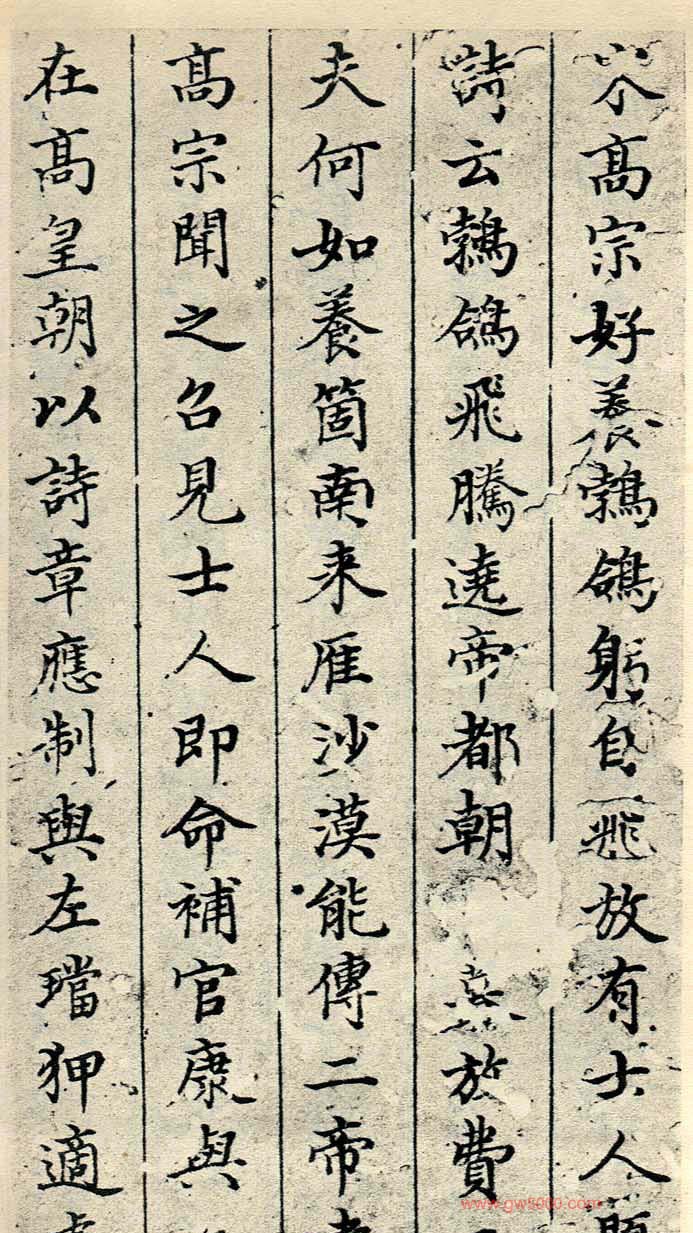 尒高宗好養鵓鴿躬自飛放有士人題
詩云鵓鴿飛騰遶帝都朝放費
夫何如養箇南来雁沙漠能傳二帝書
高宗聞之召見士人即命補官康與
在高皇朝以詩章應制與左璫狎適
www.gw5000.com